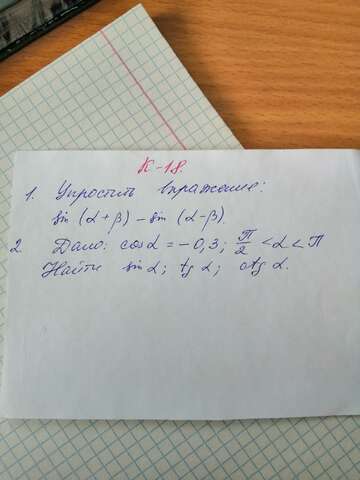 К-18.
1. Упростить выражение:
sin (α+β) - sin (α-β)
2. Дано: cosα = -0,3; π/2 < α < π
Найти sinα; tgα; ctgα.